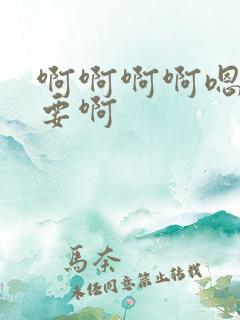 啊啊啊啊嗯
要啊
馬奈
未经同意禁止转载